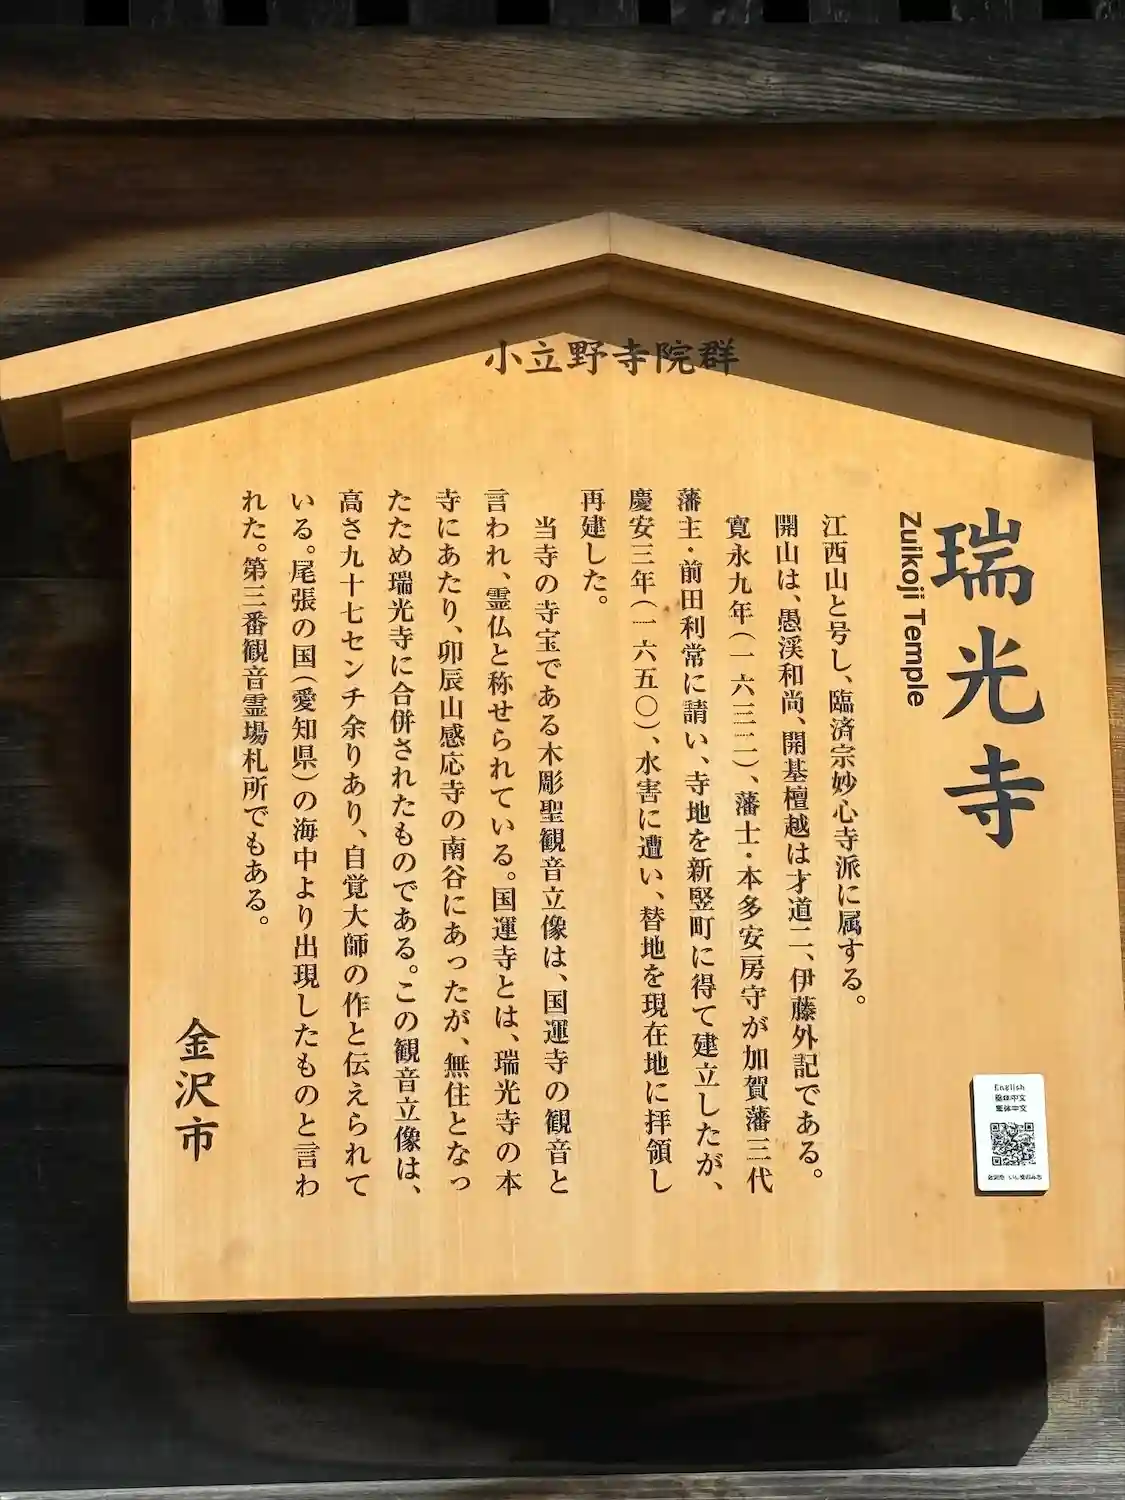 小立野寺院群
瑞光寺
Zuikoji Temple
江西山と号し、臨済宗妙心寺派に属する。
開山は、愚渓和尚、開基檀越は才道二、伊藤外記である。
寛永九年(一六三二)、藩士・本多安房守が加賀藩三代
藩主・前田利常に請い、寺地を新竪町に得て建立したが、
慶安三年(一六五〇)、水害に遭い、替地を現在地に拝領し
再建した。
当寺の寺宝である木彫聖観音立像は、国運寺の観音と
言われ、霊仏と称せられている。国運寺とは、瑞光寺の本
寺にあたり、卯辰山感応寺の南谷にあったが、無住となっ
たため瑞光寺に合併されたものである。この観音立像は、
高さ九十七センチ余りあり、自覚大師の作と伝えられて
いる。尾張の国(愛知県)の海中より出現したものと言わ
れた。第三番観音霊場札所でもある。
金沢市
English
簡体中文
繁体中文